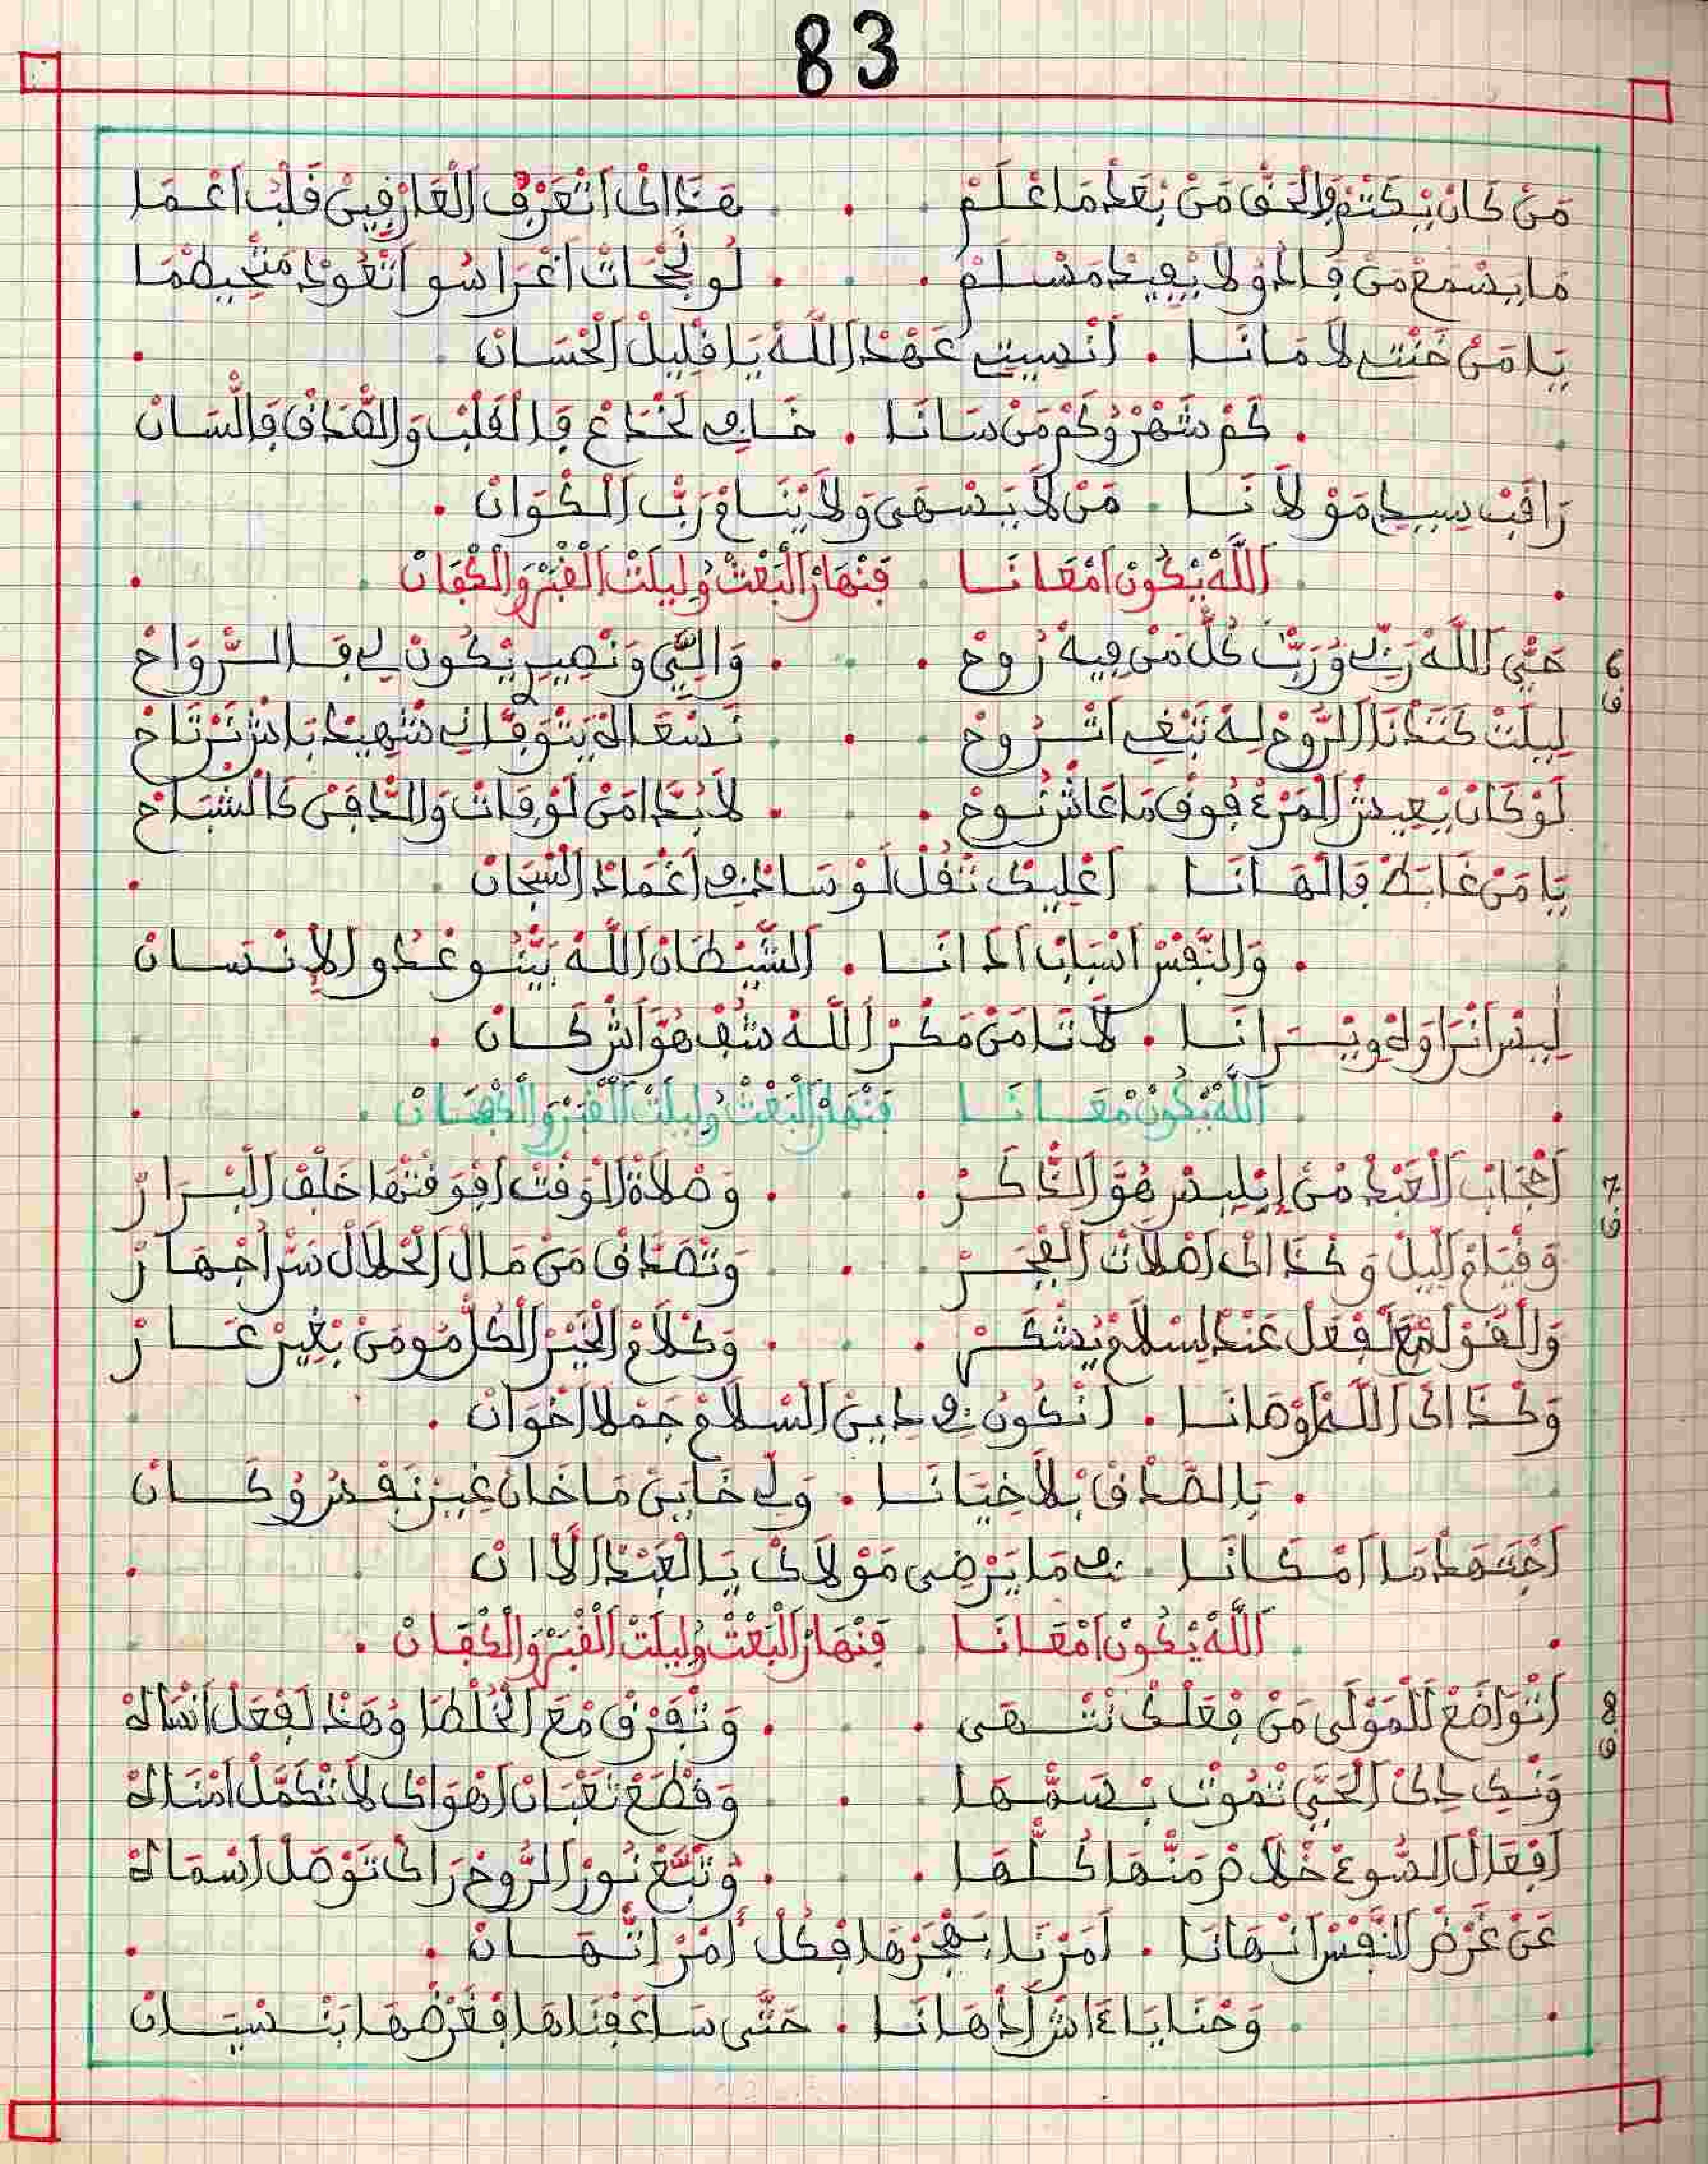 83
مَنْ كَانْ يَكْتَمْ الْحَقْ مَنْ بَعْدْ مَا عْلَمْ . هَذَاكْ اتْعَرْفْ الْعَارْفِينْ قَلْبْ اَعْمَا
مَا يَسْمَعْ مَنْ قَالُو لَا يْفِيدْ مَسْلَمْ . لُو نْجَحَاتْ اغْرَاسُو اتْعُودْ مَتْحِيطْمَا
يَا مَنْ خَنْتِ لَامَانَا . اَنْسِيتِ عَهْدْ اللَّهْ يَا قْلِيلْ الْحْسَانْ .
. كَمْ شْهَرْ وُكَمْ مَنْ سَانَا . خَافِي لَخْدَاعْ فَالْقَلْبْ وَالصَّدَاقْ فَالْسَانْ
رَاقَبْ سِيدِ مَوْلَانَا . مَنْ لَا يَسْهَى وَلَا يْنَامْ رَبّْ الْكْوَانْ .
. اَللَّهْ يْكُونْ امْعَانَا . فَنْهَارْ الْبَعْتْ وُلِيلَتْ الْقْبَرْ وَالْكْفَانْ .
6 ق
حَيّْ اللَّهْ رَبِّي وُرَبّْ كُلّْ مَنْ فِيهْ رُوحْ . وَالِيِّي وَنْصِيرْ يْكُونْ لِي فَالرّْوَاحْ
لِيلَتْ كَتَّنْدَا الرُّوحْ لِهْ تَبْغِي اتْرُوحْ . نَسْعَالَهْ يَتْوَفَّانِي شْهِيدْ بَاشْ نَرْتَاحْ
لَوْ كَانْ يْعِيشْ الْمَرْءْ فُوقْ مَا عَاشْ نُوحْ . لَابُدَّا مَنْ لَوْفَاتْ وَالدّْفَنْ كَالشْبَاحْ
يَا مَنْ غَابَطْ فَالْهَانَا . اَعْلِيكْ تَقْلْ لَوْسَادْ فِي اغْمَادْ السّْجَانْ .
. وَالنَّفْسْ اسْبَابْ الدَانَا . الشَّيْطَانْ اللَّهْ بَيّْنُو عْدُو الْاِنْسَانْ
لِيسْ انْرَاوَهْ وِيْرَانَا . لَا تَامَنْ مَكْرْ اللَّهْ شُفْ هُوَّ اشْ كَانْ .
. اَللَّهْ يْكُونْ مْعَانَا . فَنْهَارْ الْبَعْتْ وُلِيلَتْ الْقْبَرْ وَالْكْفَانْ .
7 ق
اَحْجَابْ الْعَبْدْ مْنْ اِبْلِيسْ هُوَّ الذَّاكَرْ . وَصْلَاةْ الْوَقْتْ افْوَقْتْهَا خَلْفْ الْبْرَارْ
وَقْيَامْ اللِّيلْ وَكْذَاكْ اصْلَاتْ الْفْجَرْ . وَتْصَدَّاقْ مَنْ مَالْ الْحْلَالْ سَرّْ اجْهَارْ
وَالْقَوْلْ مْعَ لَفْعَلْ عَنْدْ لِسْلَامْ يُشْكَرْ . وَكْلَامْ الْخَيْرْ الْكُلّْ مُومَنْ بْغِيرْ عَارْ
وَكْذَاكْ اللَّهْ اوْصَانَا . انْكُونُ فِي دِينْ السْلَامْ جَمْلَا اخْوَانْ .
. بَالصّْدَاقْ بْلَا خْيَانَا . وَلِي خَايَنْ مَا خَانْ غِيرْ نَفْسُ وُكَانْ
اَجْتَهَدْ مَا امْكَانَا . فِي مَا يَرْضِي مَوْلَاكْ يَا الْعَبْدْ الْاانْ .
. اَللَّهْ يْكُونْ امْعَانَا . فَنْهَارْ الْبَعْتْ وُلِيلَتْ الْقْبَرْ وَالْكْفَانْ .
8 ق
اَتْوَاضَعْ لَلْمَوْلَى مَنْ فَعْلَكْ تَنْتْهَى . وَتْفَرَقْ مْعَ الْخُلْطَا وُهَدْ لَفْعَلْ انْسَاهْ
الْحَيّْ تْمُوتْ بْسَمّْهَا . وَقْطَعْ تَعْبَانْ اهْوَاكْ لَا تْكَمَّلْ امْنَاهْ
اَفْعَالْ السُّوءْ خْلَاصْ مَنّْهَا كُلّْهَا . وَتْبَعْ نُورْ الرُّوحْ رَاكْ تَوْصَلْ اسْمَاهْ
عَنْ غَرْضْ النَّفْسْ انْهَانَا . اَمَرْنَا بَهْجَرْهَا فْكُلّْ اَمْرْ اتْهَانْ .
. وَحْنَا يَاءَاشْ ادْهَانَا . حَتَّى سَاعَفْنَاهَا فْغَرْضْهَا بَنْسْيَانْ